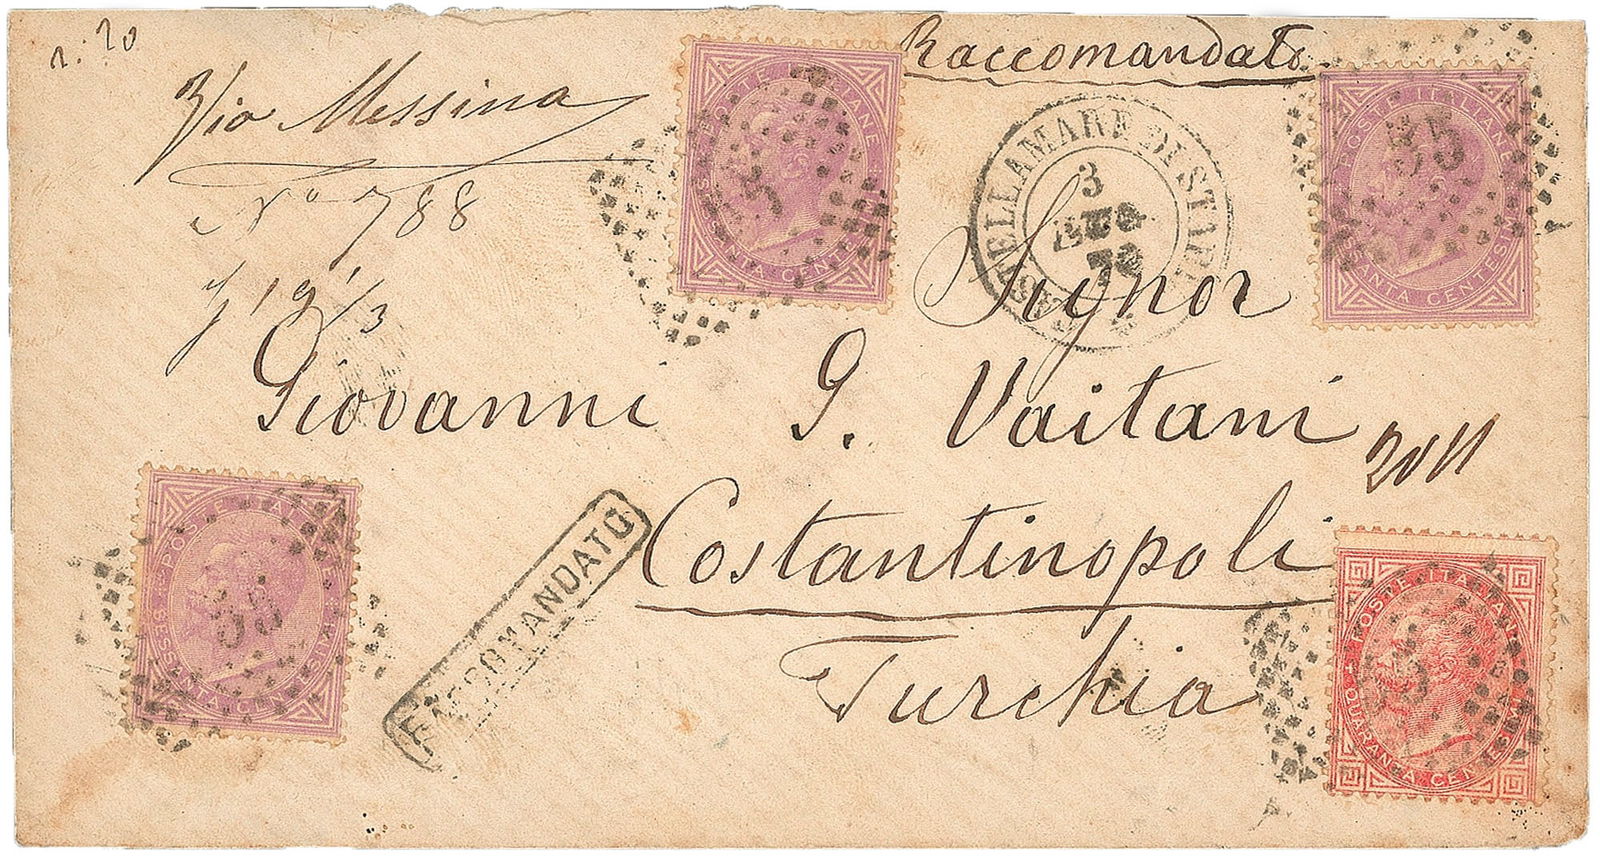 n: 20
Raccomandato
Via Messina
Nº 788
19 1/3
POSTE ITALIANE
SESSANTA CENTESIMI
POSTE ITALIANE
SESSANTA CENTESIMI
35
CASTELLAMARE DI STABIA
3
73
Signor
Giovanni G. Vaitani
Costantinopoli
Turchia
RACCOMANDATO
POSTE ITALIANE
SESSANTA CENTESIMI
35
POSTE ITALIANE
QUARANTA CENTESIMI